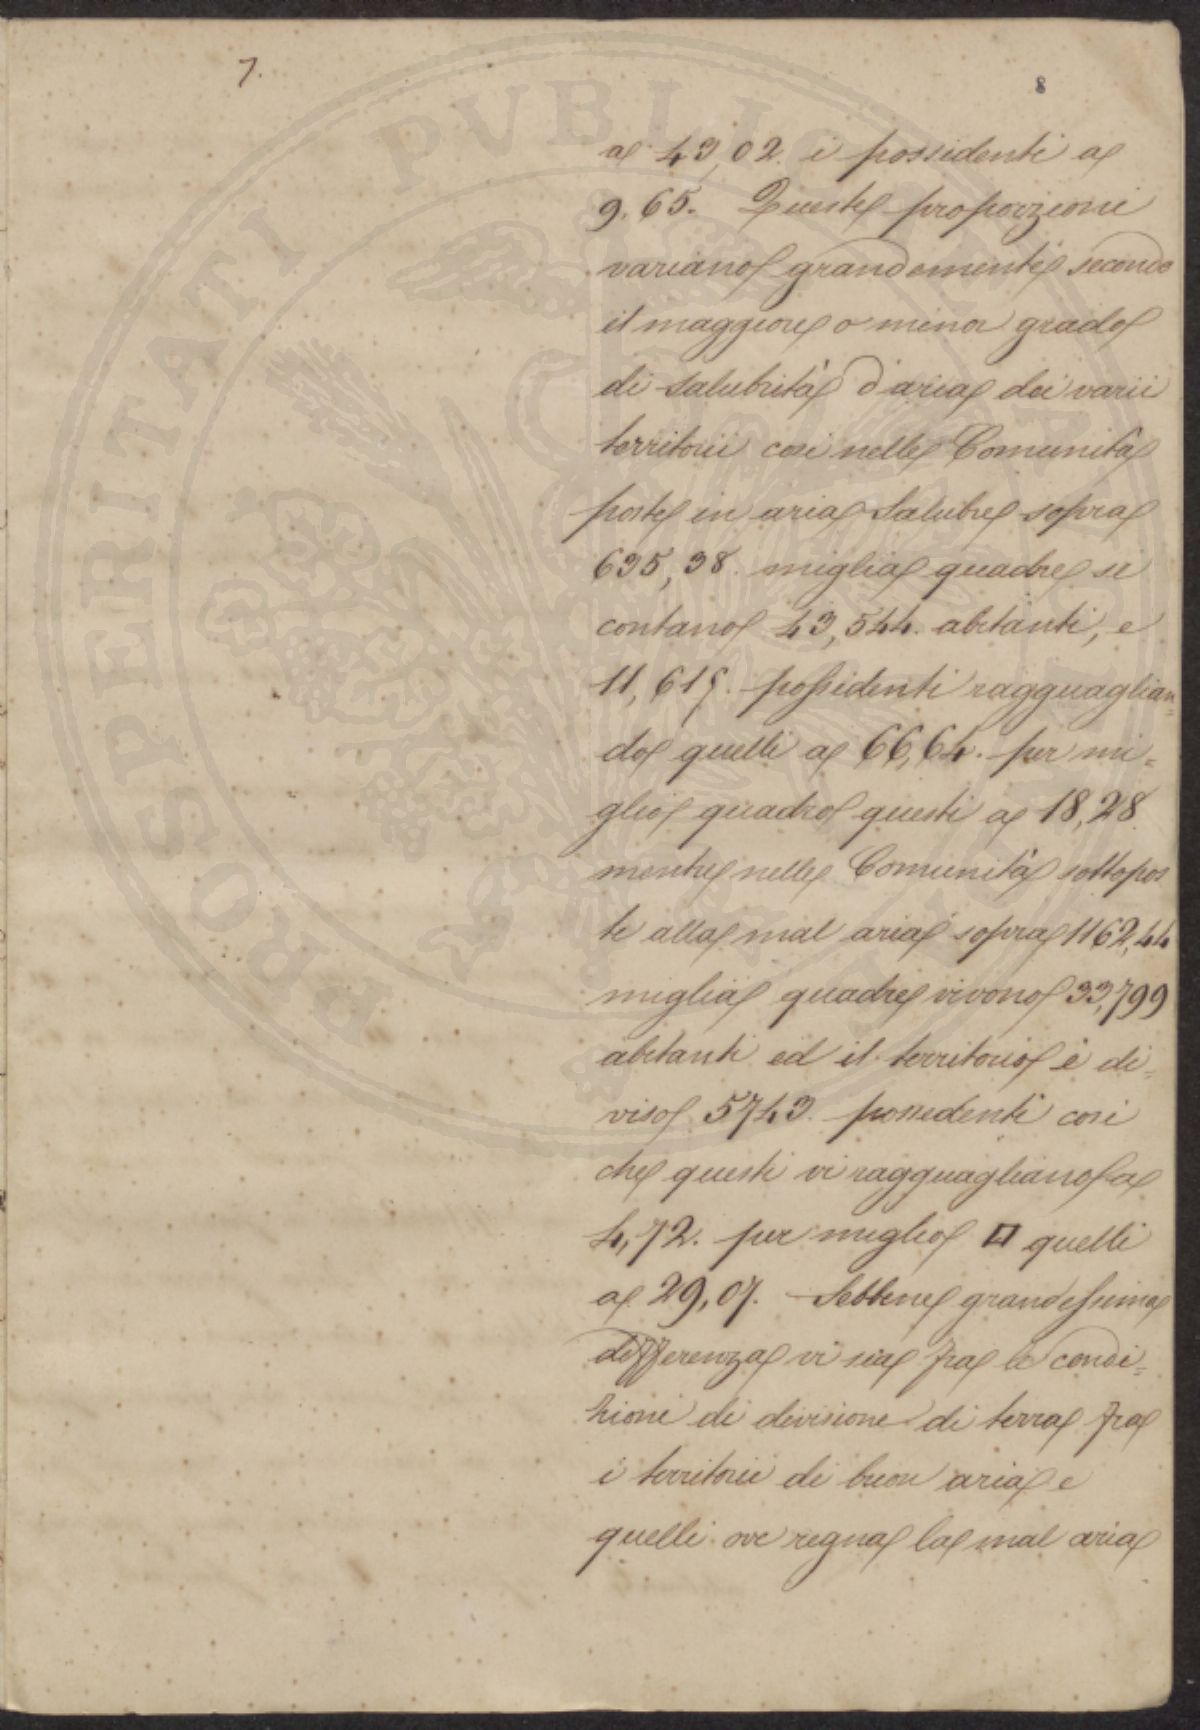 7.
8
a 43,02. i possidenti a
9.65. Queste proporzioni
variano grandemente secondo
il maggiore o minor grado
di salubrità d'aria dei varii
territorii così nelle Comunità
poste in aria salubre sopra
635,38. miglia quadre si
contano 43,544. abitanti, e
11,615. possidenti ragguaglian=
do quelli a 66,64. per mi=
glio quadro questi a 18,28
mentre nelle Comunità sottopos
te alla mal aria sopra 1162,44
miglia quadre vivono 33,799
abitanti ed il territorio è di=
viso 5743. possedenti così
che questi vi ragguagliano a
4,72. per miglio □ quelli
a 29,07. Sebbene grandissima
differenza vi sia fra le condi=
zioni di divisione di terra fra
i territorii di buon aria e
quelli ove regna la mal aria
PROSPERITATI PVBLICAE